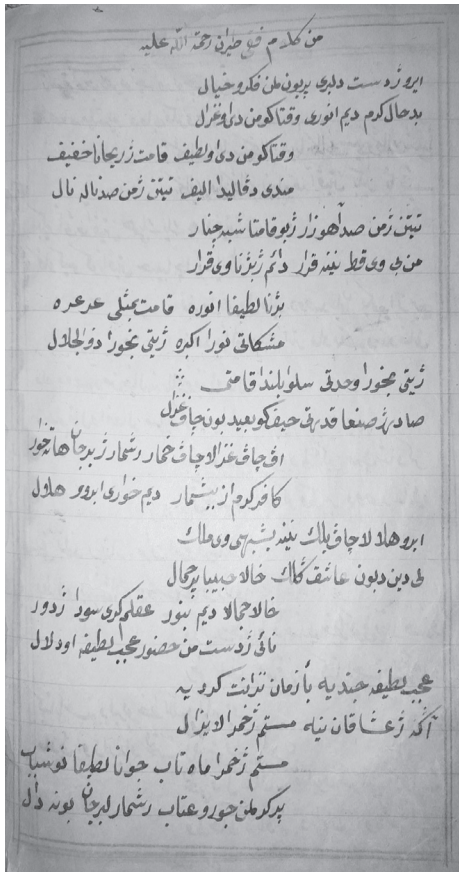 من كلام فقى طيران رحمة الله عليه
ايرو ژدست دلبرى پربون لمن فكر و خيال
بدحال كرم ديم انورى وقتا كو من دى او غزال
وقتا كو من دى او لطيف قامت ژريحانا خفيف
مندى دقاليدا اليف تيتن ژمن صد ناله نال
تيتن ژمن صد آهوزار ژبو قامتا شبه چنار
من بى وى قط نينه قرار دائم ژبژنا وى قرار
بژنا لطيفا انوره قامت بمثلى عرعره
مشكاتى نورا اكبره ژيتى بخورا ذو الجلال
ژيتى بخورا وحدتى سلوا بلندا قامتى
صاد ژصنعا قدرتى حيف كو بعيد بون چاڤ غزال
اڤ چاڤ غزالا چاڤ خمار رشمار ژبرجان هاته خوار
كافر كرم از بيشمار ديم خوارى ابرو هلال
ابرو هلالا چاڤ بلك نينه بشبهى وى ملك
لى دين دبون عاشق گلك خالا حبيبا پر جمال
خالا جمالا ديم بنور عقلم كرى سودا ژدور
نائى ژدست من حضور عجب لطيفه او دلال
عجب لطيفه جنديه بازمان نزانت كرديه
آگه ژعشاقان نيه مستم ژخمرا لايزال
مستم ژخمرا ماه تاب جوانا لطيفا نوشباب
پر كر لمن جور و عتاب رشمار لبرجان بونه دال